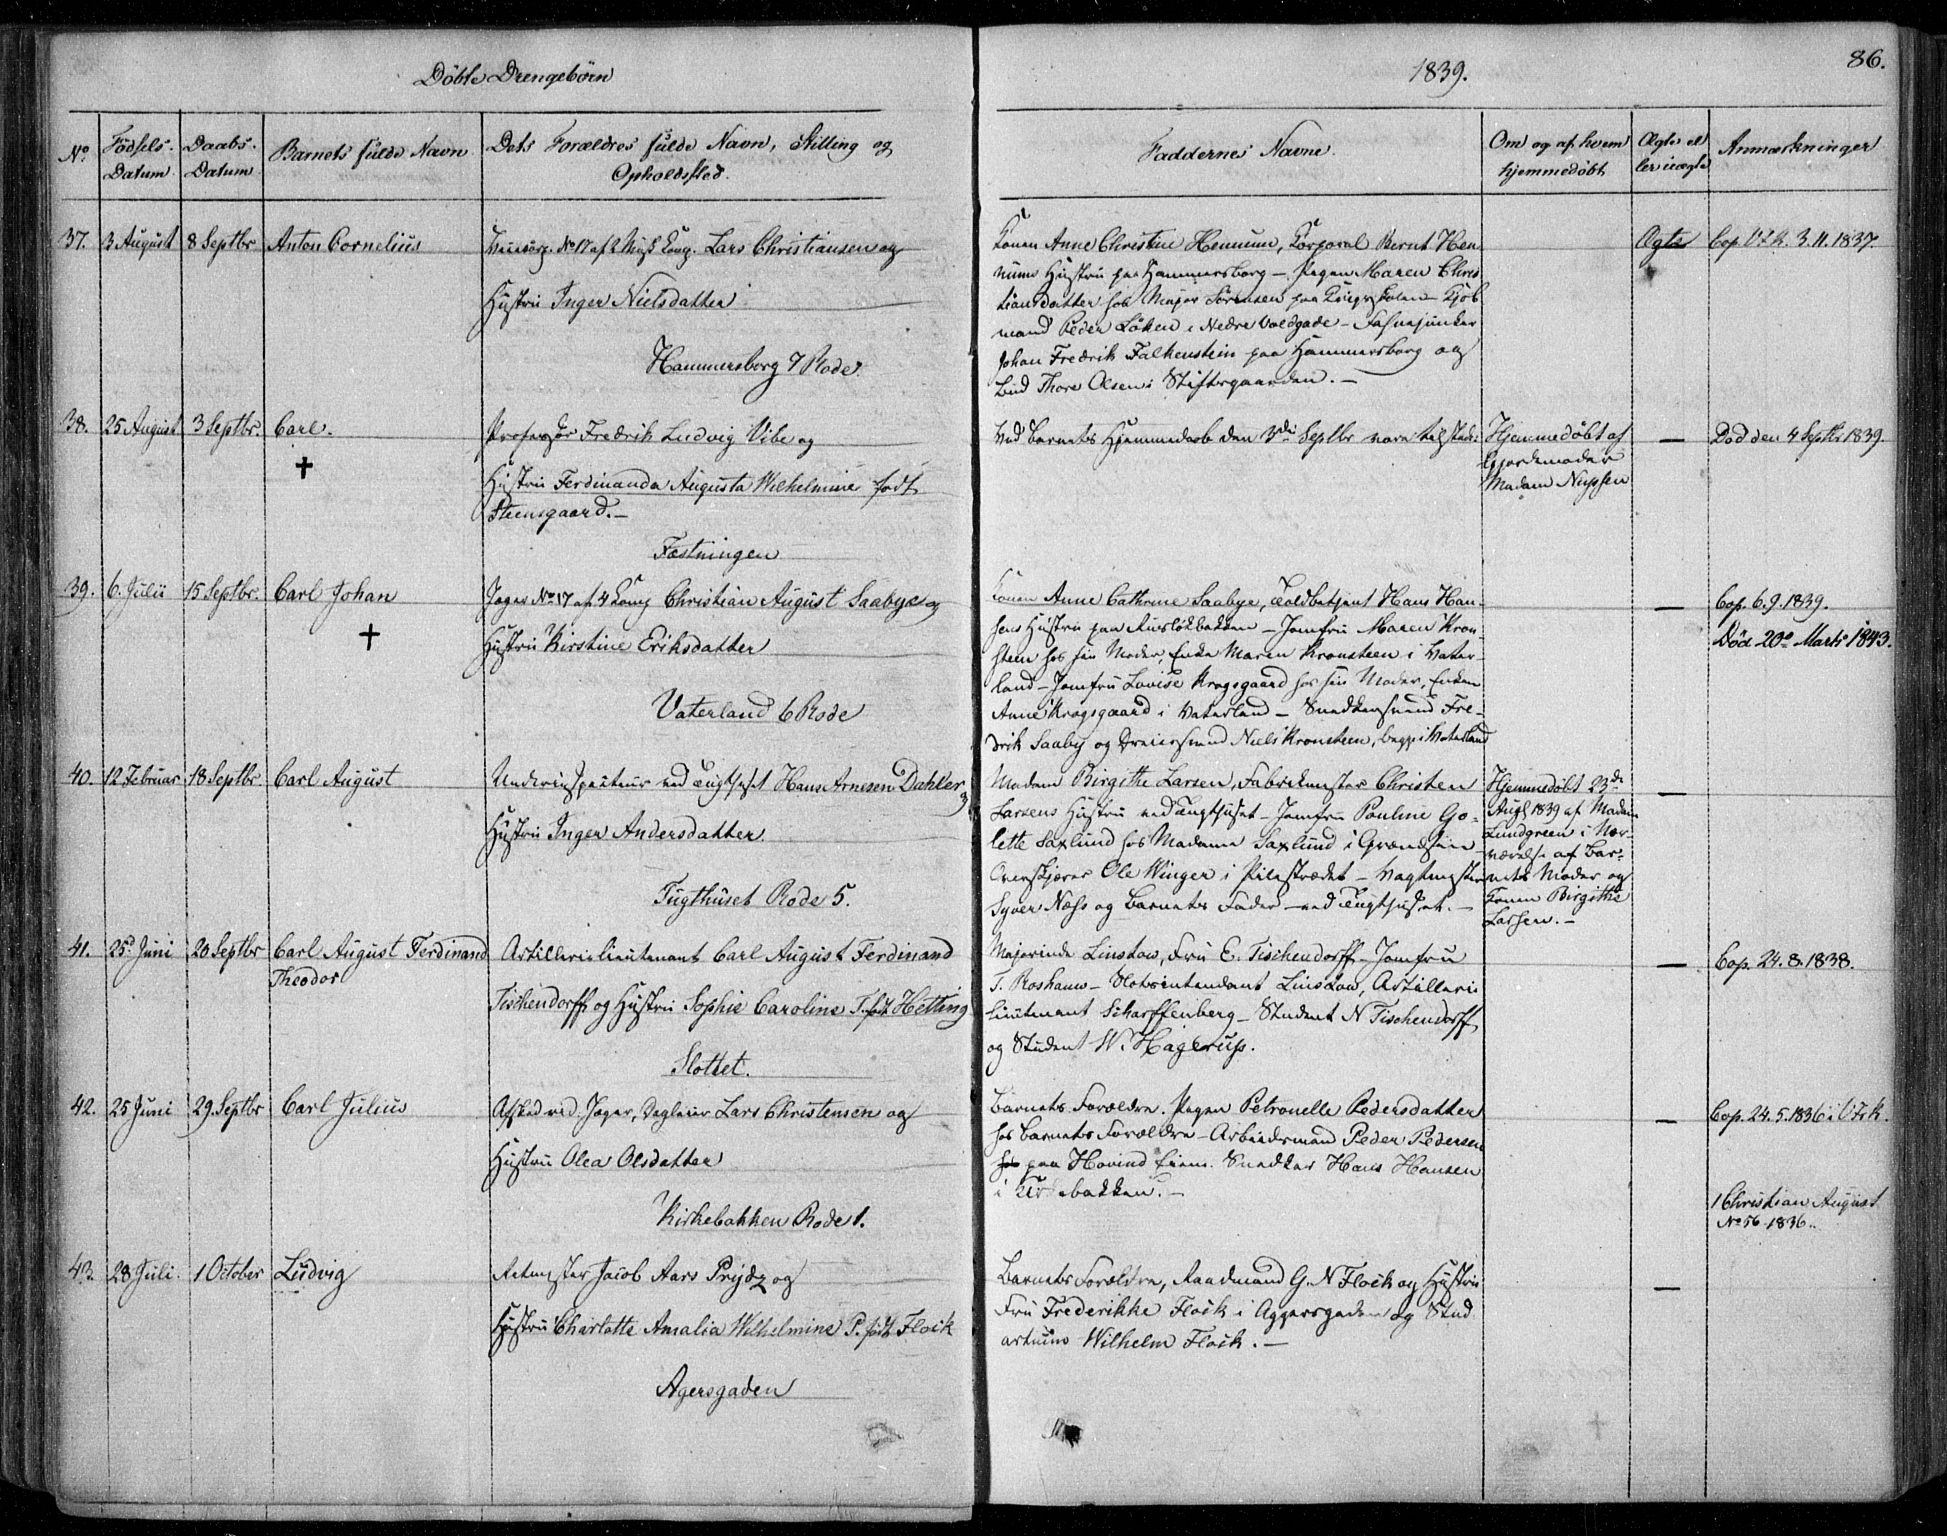 Döbte Drengebörn
1839.
86.
No.
Födsels-Datum
Daabs-Datum
Barnets fulde Navn
Dets Forældres fulde Navn, Stilling og
Opholdssted.
Faddernes Navne
Om og af hvem
hjemmedöbt
Ægte el
ler uægte
Anmærkninger
37. 3 August 8 Septbr Anton Cornelius
No 17 af 2 Lars Christiansen og
Hustru Inger Nielsdatter
Hammersborg 7 Rode.
Konen Anne Christine Hennum, Korporal Bernt Hen
nums Hustru paa Hammersborg – Pigen Maren Chris
tiansdatter hos Major Sörensen paa Krigsskolen – Kjöb
mand Peder Löken i Nedre Voldgade – Fahnejunker
Johan Fredrik Falkenstein paa Hammersborg og
Bud Thore Olsen i Stiftsgaarden. –
Ægte
Cop. 3.11.1837.
38. 25 August 3 Septbr. Carl.
Professor Fredrik Ludvig Vibe og
Hustru Ferdinanda Augusta Wilhelmine født
Steensgaard. –
Fæstningen
Ved Barnets Hjemmedaab den 3de Septbr vare tilstede:
Hjemmedöbt af
Gjordemoder
Madam
—
Död den 4 Septbr 1839.
39. 6. Julii 15 Septbr. Carl Johan
Jæger No 17 af 4 Comp Christian August Saabye og
Hustru Kirstine Eriksdatter
Vaterland 6 Rode
Konen Anne Cathrine Saabye, Toldbetjent Hans Han-
sens Hustru paa – Jomfru Maren Kron-
steen hos sin Moder, Enke Maren Kronsteen i Vater-
land – Jomfru Lovise Krogsgaard hos sin Moder, Enken
Anne Krogsgaard i Vaterland – Snedkersvend Fre-
drik Saaby og Dreiersvend Niels Kronsteen, begge i Vaterland
—
Cop. 6.9.1839.
Död 20de Marts 1843.
40. 12 Februar 18 Septbr. Carl August
Underinspecteur ved Tugthuset Hans Arnesen Dahler og
Hustru Inger Andersdatter.
Tugthuset Rode 5.
Madam Birgithe Larsen, Fabrikmester Christen
Larsens Hustru ved Tugthuset – Jomfru Pauline Go-
lette Saxlund hos Madame Saxlund i Grændsen –
Overskjærer Ole Winger i Pilestrædet – Vagtmester
Syver Næss og Barnets Fader – ved Tugthuset. –
Hjemmedöbt 23de
Augs 1839 af Madam
Lundgreen i Nær-
værelse af Bar-
nets Moder og
Konen Birgithe
Larsen. –
—
41. 25. Juni 20 Septbr Carl August Ferdinand
Theodor
Artillerielieutenant Carl August Ferdinand
Tischendorff og Hustru Sophie Caroline T. født Hetting
Slottet.
Majorinde Linstow, Fru E. Tischendorff – Jomfru
T. Roshauw – Slotsintendant Linstow, Artillerie
lieutenant Scharffenberg – Student N Tischendorff
og Student W. Hagerup.
—
Cop. 24.8.1838.
42. 25 Juni 29. Septbr Carl Julius
Afskediged Jæger, Dagleier Lars Christensen og
Hustru Olea Olsdatter
Kirkebakken Rode 1.
Barnets Forældre. Pigen Petronelle Pedersdatter
hos Barnets Forældre – Arbeidsmand Peder Pedersen
paa Hovind Eiem. Snedker Hans Hansen
i Kirkebakken. –
—
Cop. 24.5.1836 i
1 Christian August
No 56 1836.
43. 28 Juli. 1 October Ludvig
Retmester Jacob Aars Prydz og
Hustru Charlotte Amalia Wilhelmine P. født Flock
Agersgaden
Barnets Forældre, Raadmand G. N Flock og Hustru
Fru Frederikke Flock i Aggersgaden og Stud
artium Wilhelm Flock. –
—